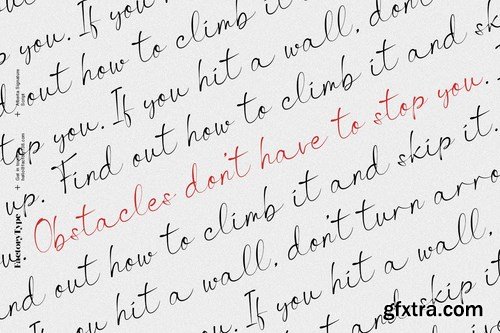 p you. If you hit a wall, don't
d out how to climb it and sk
top you. If you hit a wall, don't
up. Find out how to climb it and sk
Obstacles don't have to stop you.
nd out how to climb it and skip it.
hit a wall, don't turn arro
you. If you hit a wall,
climb it and skip it
Factory Type
gfxtra.com